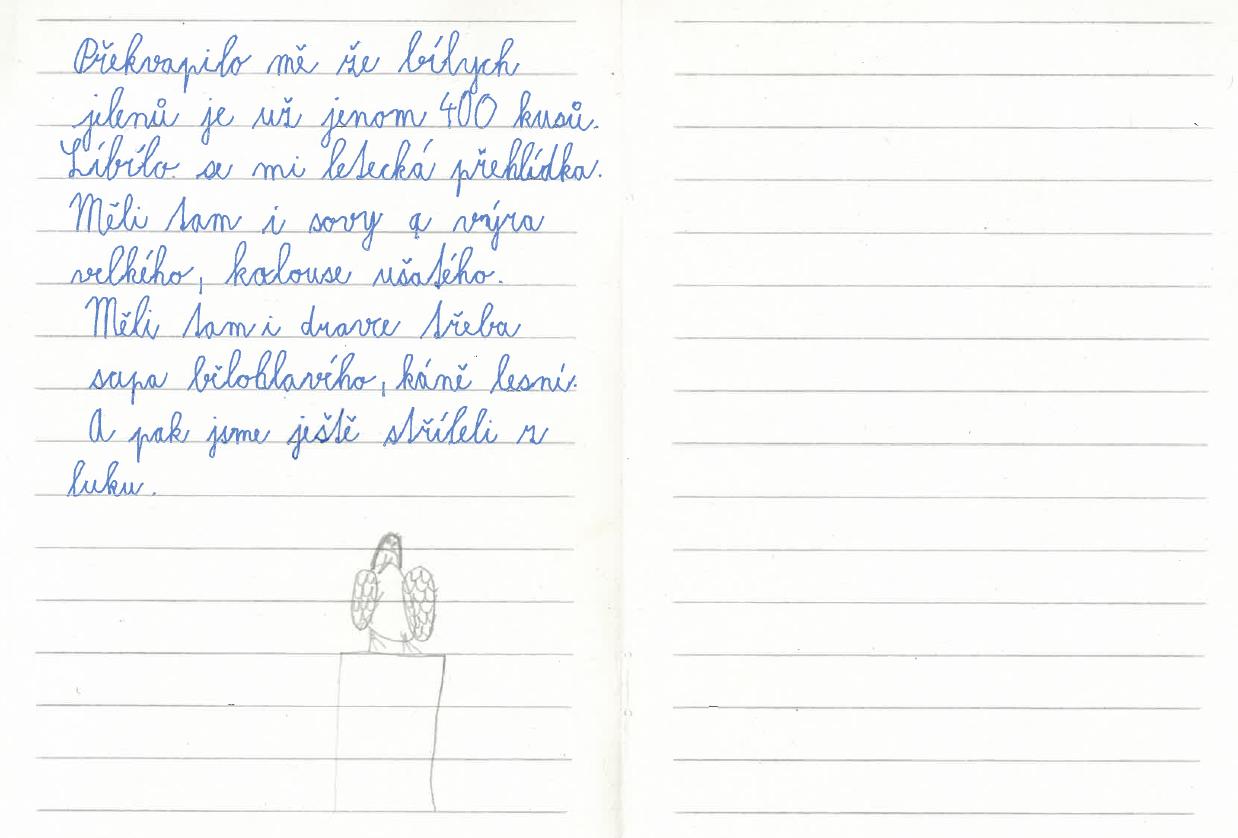 Překvapilo mě že bílych
jelenů je už jenom 400 kusů.
Líbílo se mi letecká přehlídka.
Měli tam i sovy a výra
velkého, kalouse ušatého.
Měli tam i dravce třeba
supa bělohlavího, káně lesní.
A pak jsme ještě stříleli z
luku.